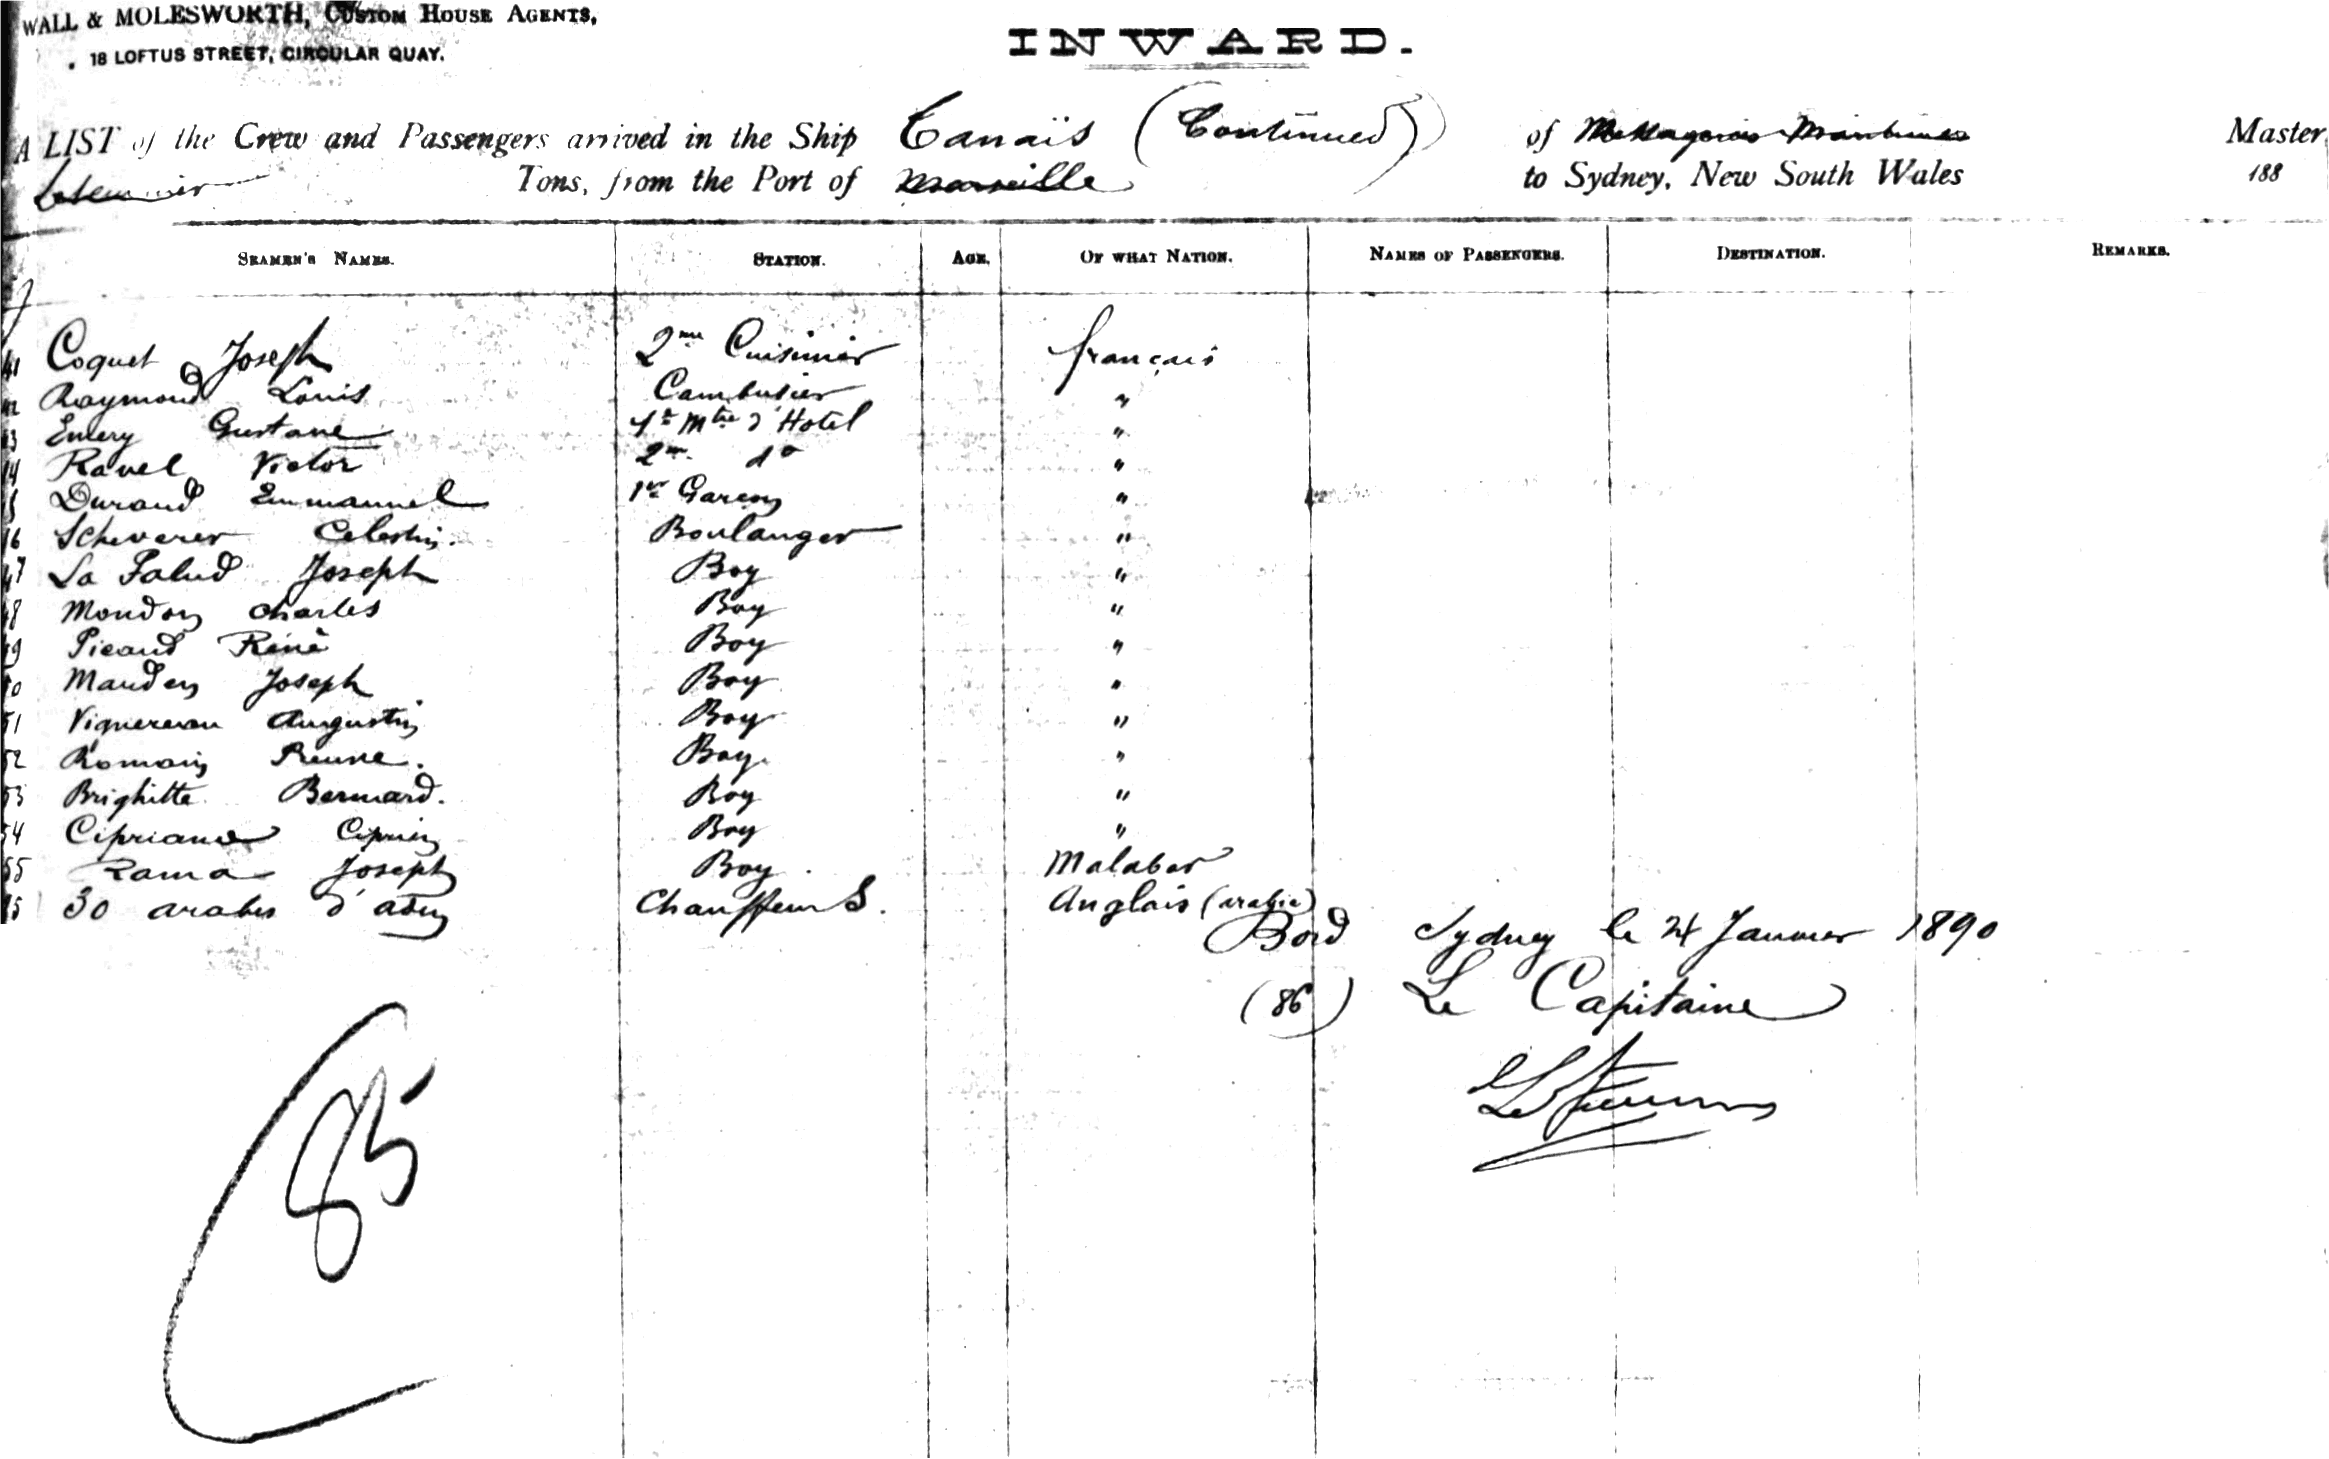 WALL & MOLESWORTH, CUSTOM HOUSE AGENTS,
18 LOFTUS STREET, CIRCULAR QUAY.
INWARD.
A LIST of the Crew and Passengers arrived in the Ship Tanaïs (Continued) of Messageries Maritimes Master
Tons, from the Port of Marseille to Sydney, New South Wales 188
SEAMEN'S NAMES. STATION. AGE. OF WHAT NATION. NAMES OF PASSENGERS. DESTINATION. REMARKS.
41 Coquet Joseph 2me Cuisinier français
42 Raymond Louis Cambusier "
43 Emery Gustave 1er Mtre d'Hotel "
44 Ravel Victor 2me do "
Durand Emmanuel 1er Garçon "
46 Scheverer Celestin. Boulanger "
47 La Palud Joseph Boy "
48 Mondon Charles Boy "
49 Picaud Réné Boy "
50 Manden Joseph Boy "
51 Vignereau Augustin Boy "
52 Romain Boy. "
53 Brighitte Bernard. Boy "
54 Cipriano Ciprien Boy "
55 Rama Joseph Boy. Malabar
85 30 arabes d'aden Chauffeurs. Anglais (arabie)
Bord Sydney le 24 Janvier 1890
(86) Le Capitaine
85